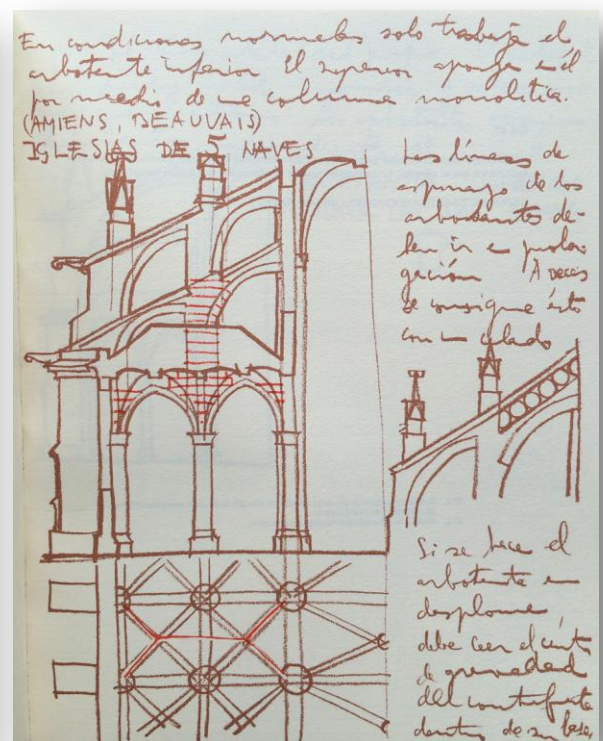 En condiciones normales solo trabaja el
arbotante inferior El superior apoya en él
por medio de una columna monolítica.
(AMIENS, BEAUVAIS)
IGLESIAS DE 5 NAVES
Las líneas de
empuje de los
arbotantes de-
ben ir en prolon
gación A veces
se consigue ésto
con un calado
Si se hace el
arbotante en
desplome
debe caer el
de gravedad
del contrafuerte
dentro de su base,